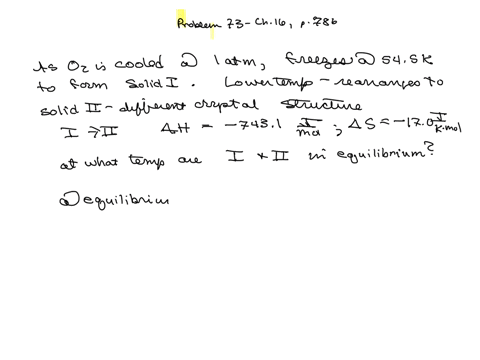 Problem 73 - Ch.16, p.786
As O₂ is cooled @ 1 atm, freezes @ 54.5K
to form Solid I. Lower temp - rearranges to
solid II - different crystal structure
I ⇌ II ΔH = -743.1 J/mol ; ΔS = -17.0 J/K·mol
at what temp are I + II in equilibrium?
@ equilibrium